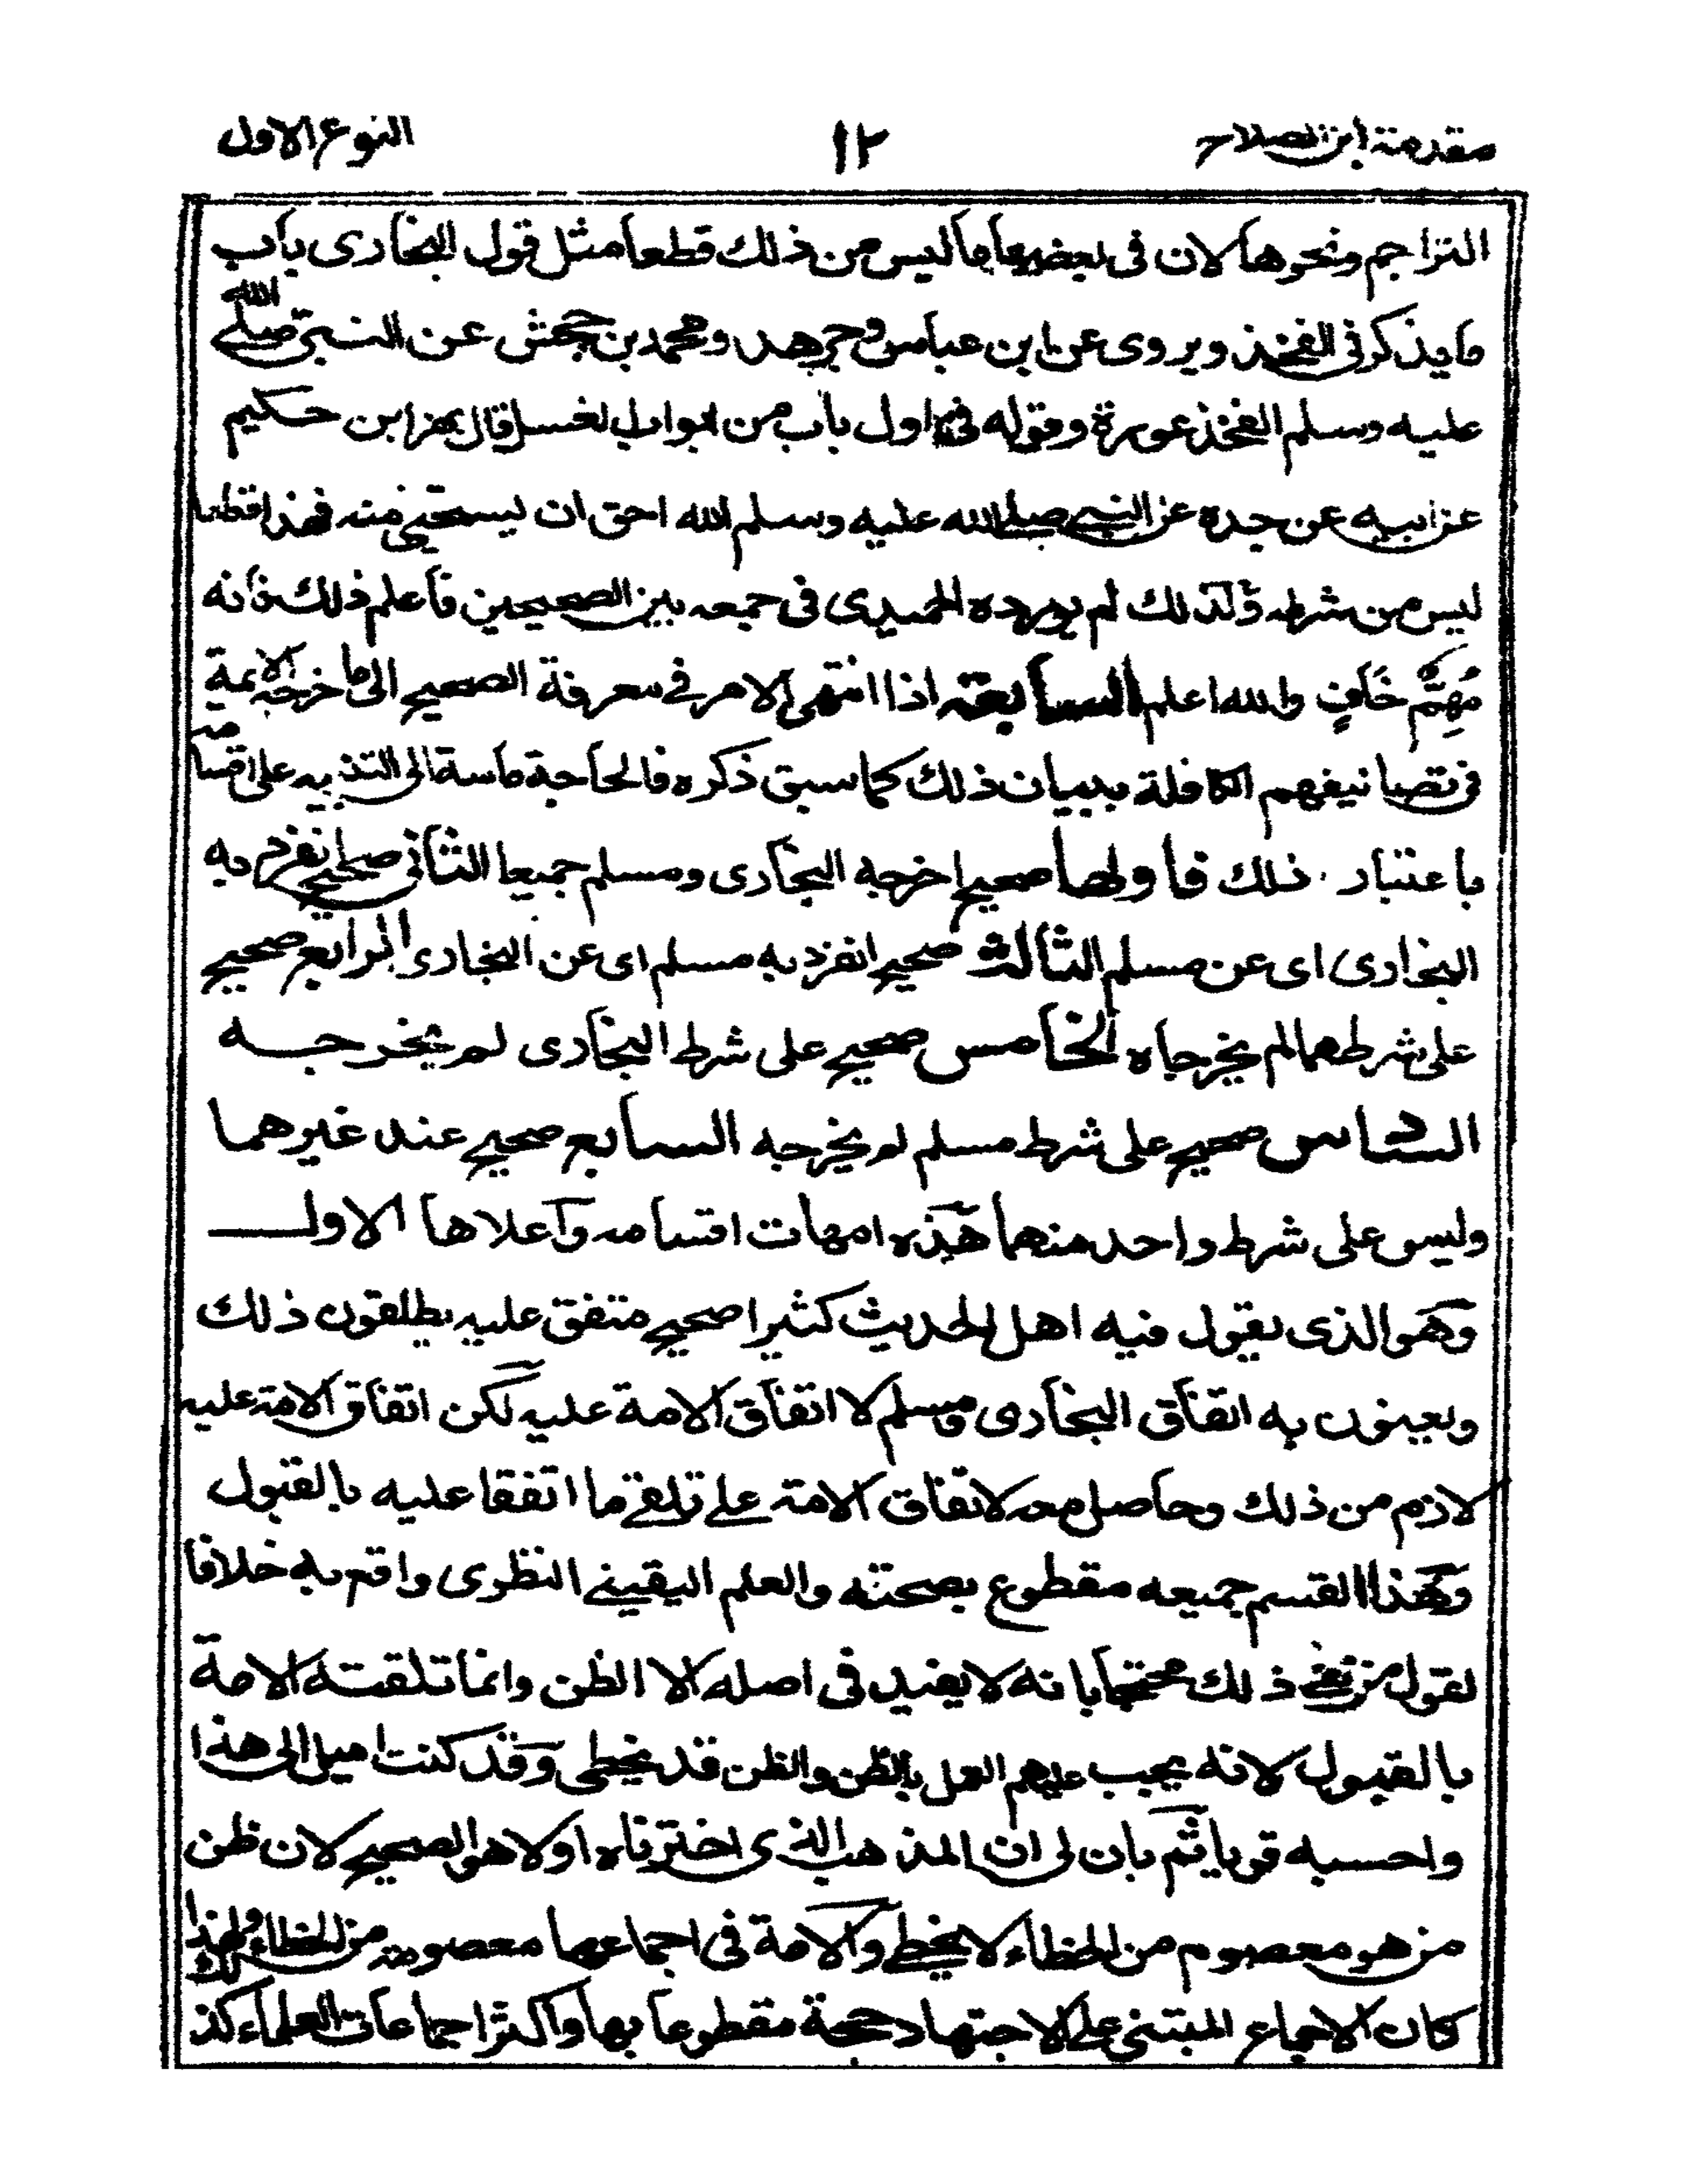 مقدمة ابن الصلاح ١٢ النوع الاول
التراجم ونحوها لان فى بعضها ما ليس من ذلك قطعا مثل قول البخارى باب
ما يذكر فى الفخذ ويروى عن ابن عباس وجرهد ومحمد بن جحش عن النبى صلى الله
عليه وسلم الفخذ عورة وقوله فى اول باب من ابواب الغسل قال بهز ابن حكيم
عن ابيه عن جده عن النبى صلى الله عليه وسلم الله احق ان يستحيى منه فهذا قطعا
ليس من شرطه ولذلك لم يورده الحميدى فى جمعه بين الصحيحين فاعلم ذلك فانه
مُهِمٌّ خَافٍ والله اعلم السابعة اذا انتهى الامر فى معرفة الصحيح الى ما خرجه الائمة
فى تصانيفهم الكافلة ببيان ذلك كما سبق ذكره فالحاجة ماسة الى التنبيه على اقسامه
باعتبار ذلك فاولها صحيح اخرجه البخارى ومسلم جميعا الثانى صحيح انفرد به
البخارى اى عن مسلم الثالث صحيح انفرد به مسلم اى عن البخارى الرابع صحيح
على شرطهما لم يخرجاه الخامس صحيح على شرط البخارى لم يخرجه
السادس صحيح على شرط مسلم لم يخرجه السابع صحيح عند غيرهما
وليس على شرط واحد منهما هذه امهات اقسامه واعلاها الاول
وهو الذى يقول فيه اهل الحديث كثيرا صحيح متفق عليه يطلقون ذلك
ويعنون به اتفاق البخارى ومسلم لا اتفاق الامة عليه لكن اتفاق الامة عليه
لازم من ذلك وحاصل معه لاتفاق الامة على تلقى ما اتفقا عليه بالقبول
وهذا القسم جميعه مقطوع بصحته والعلم اليقينى النظرى واقع به خلافا
لقول من نفى ذلك محتجا بانه لا يفيد فى اصله الا الظن وانما تلقته الامة
بالقبول لانه يجب عليهم العمل بالظن والظن قد يخطى وقد كنت اميل الى هذا
واحسبه قويا ثم بان لى ان المذهب الذى اخترناه اولا هو الصحيح لان ظن
من هو معصوم من الخطاء لا يخطى والامة فى اجماعها معصومة من الخطاء ولهذا
كان الاجماع المبتنى على الاجتهاد حجة مقطوعا بها واكثر اجماعات العلماء كذلك